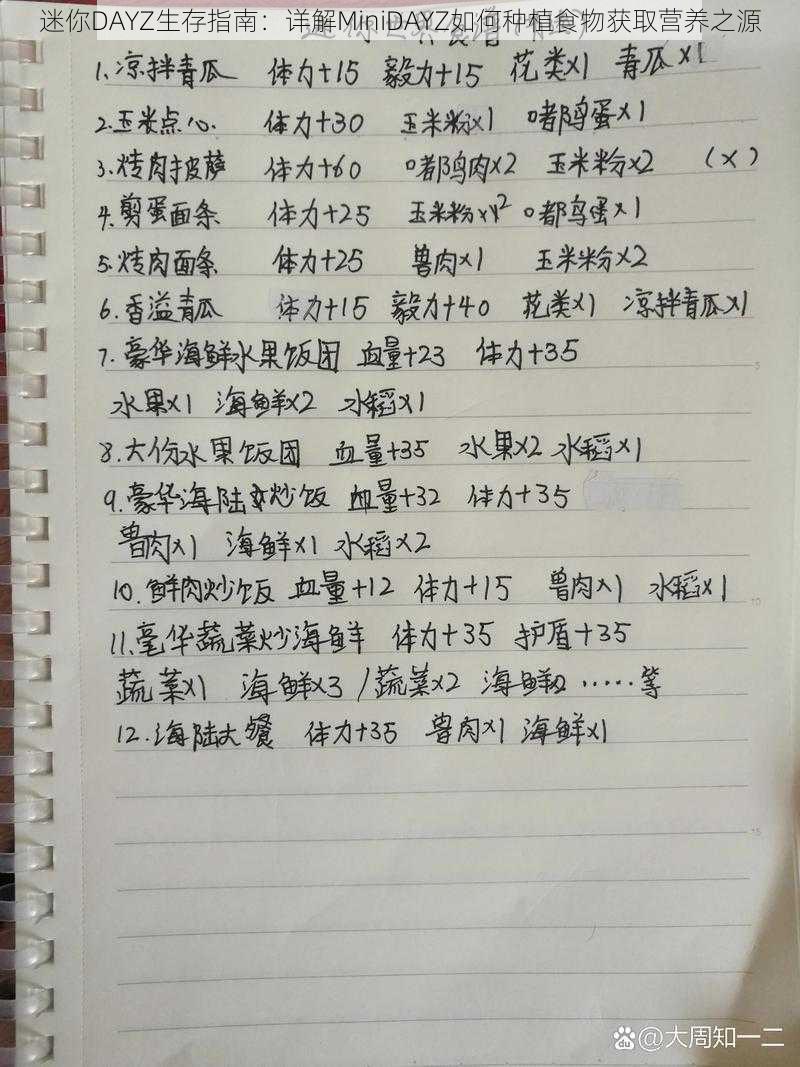 迷你DAYZ生存指南：详解MiniDAYZ如何种植食物获取营养之源
1.凉拌青瓜 体力+15 毅力+15 花类x1 青瓜x1
2.玉米点心 体力+30 玉米粉x1 嘟鸟蛋x1
3.烤肉披萨 体力+60 嘟鸟肉x2 玉米粉x2 (x)
4.剪蛋面条 体力+25 玉米粉x2 嘟鸟蛋x1
5.烤肉面条 体力+25 兽肉x1 玉米粉x2
6.香溢青瓜 体力+15 毅力+40 花类x1 凉拌青瓜x1
7.豪华海鲜水果饭团 血量+23 体力+35
水果x1 海鲜x2 水稻x1
8.大份水果饭团 血量+35 水果x2 水稻x1
9.豪华海陆炒饭 血量+32 体力+35
兽肉x1 海鲜x1 水稻x2
10.鲜肉炒饭 血量+12 体力+15 兽肉x1 水稻x1
11.豪华蔬菜炒海鲜 体力+35 护盾+35
蔬菜x1 海鲜x3 /蔬菜x2 海鲜x2 ……等
12.海陆大餐 体力+35 兽肉x1 海鲜x1
5
10
15
Bai du @大周知一二